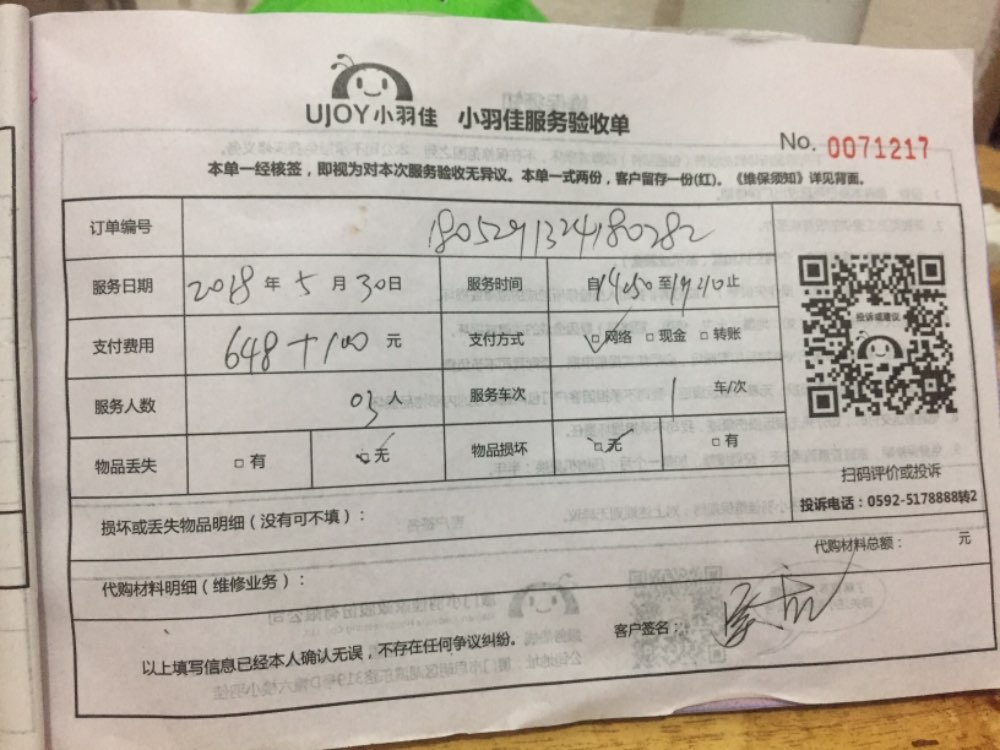 UJOY小羽佳 小羽佳服务验收单
No. 0071217
本单一经核签，即视为对本次服务验收无异议。本单一式两份，客户留存一份(红)。《维保须知》详见背面。
订单编号 1805291324180282
服务日期 2018 年 5 月 30 日 服务时间 自 14:50 至 19:210 止
支付费用 648+100 元 支付方式 □网络 □现金 □转账
服务人数 03 人 服务车次 1 车/次
物品丢失 □有 □无 物品损坏 □无 □有
投诉或建议
扫码评价或投诉
投诉电话：0592-5178888转2
损坏或丢失物品明细（没有可不填）：
代购材料总额： 元
代购材料明细（维修业务）：
客户签名：
以上填写信息已经本人确认无误，不存在任何争议纠纷。